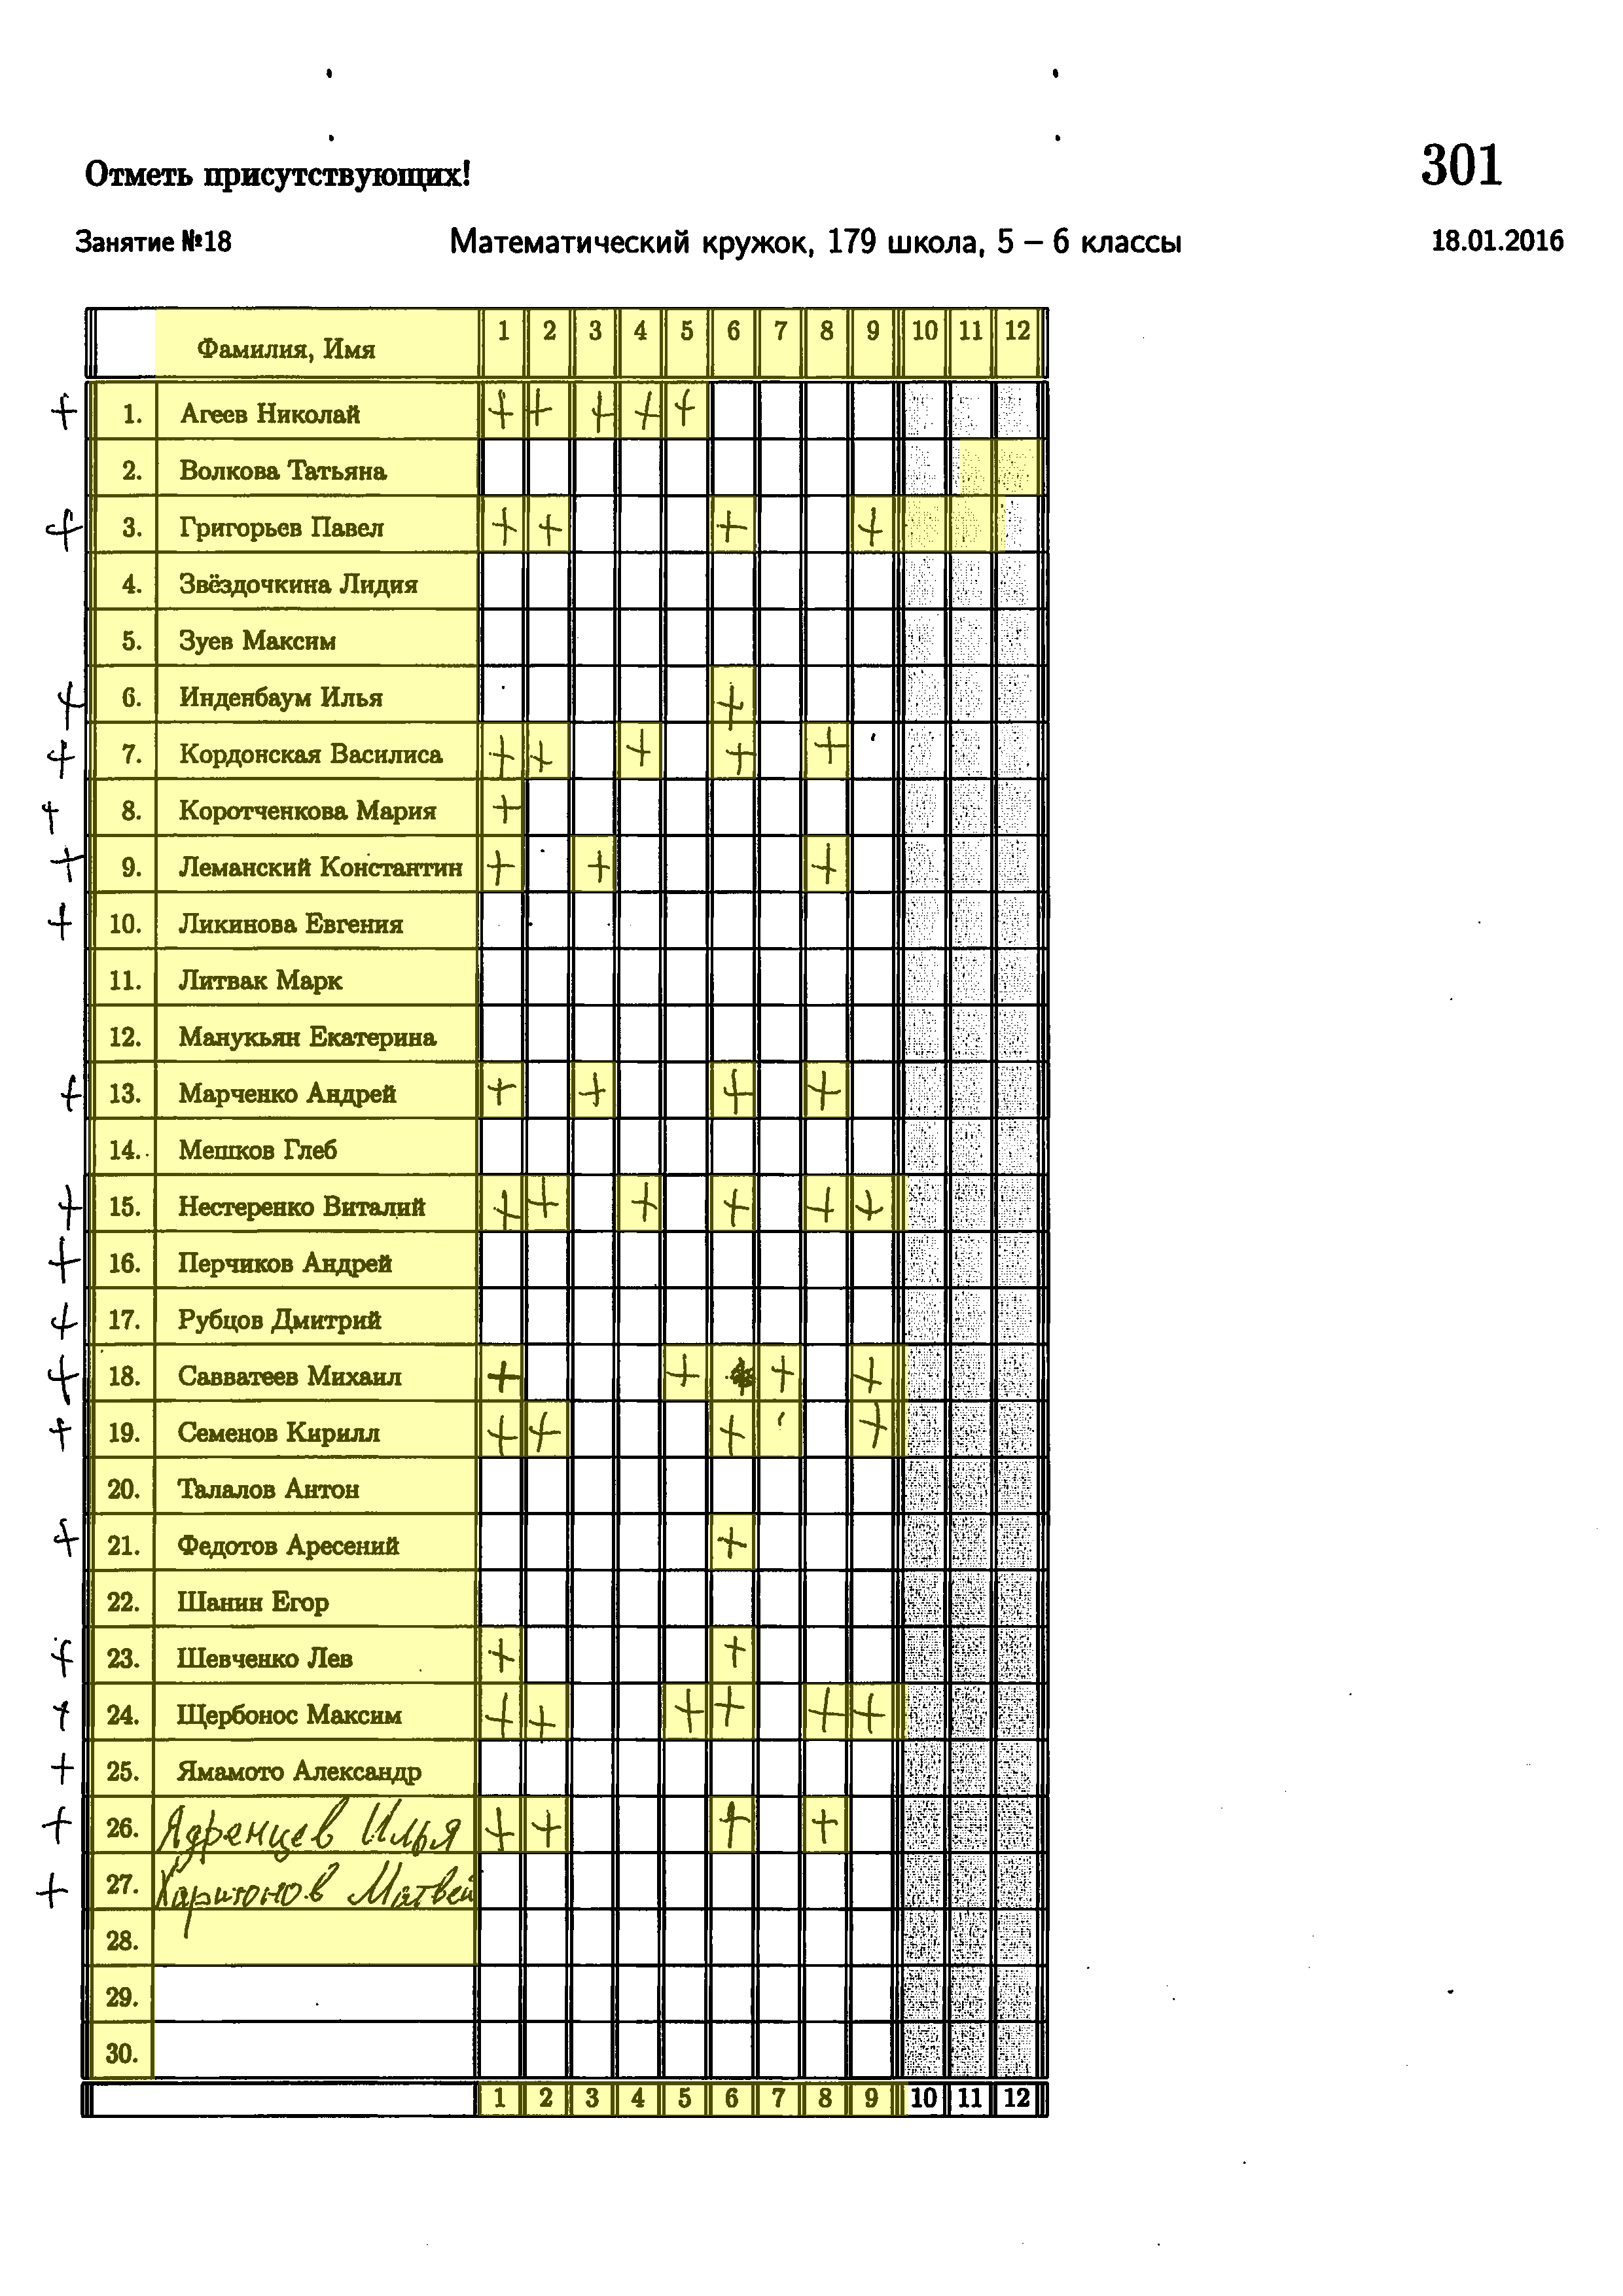 Отметь присутствующих!
301
Занятие №18 Математический кружок, 179 школа, 5 – 6 классы 18.01.2016
Фамилия, Имя 1 2 3 4 5 6 7 8 9 10 11 12
+ 1. Агеев Николай + + + + +
2. Волкова Татьяна
+ 3. Григорьев Павел + + + +
4. Звёздочкина Лидия
5. Зуев Максим
+ 6. Инденбаум Илья +
+ 7. Кордонская Василиса + + + + +
+ 8. Коротченкова Мария +
+ 9. Леманский Константин + + +
+ 10. Ликинова Евгения
11. Литвак Марк
12. Манукьян Екатерина
+ 13. Марченко Андрей + + + +
14. Мешков Глеб
+ 15. Нестеренко Виталий + + + + + +
+ 16. Перчиков Андрей
+ 17. Рубцов Дмитрий
+ 18. Савватеев Михаил + + + +
+ 19. Семенов Кирилл + + + +
20. Талалов Антон
+ 21. Федотов Аресений +
22. Шанин Егор
+ 23. Шевченко Лев + +
+ 24. Щербонос Максим + + + + + +
+ 25. Ямамото Александр
+ 26. Ядренцев Илья + + + +
+ 27. Харитонов Матвей
28.
29.
30.
1 2 3 4 5 6 7 8 9 10 11 12